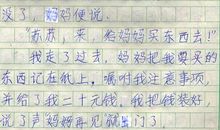 没了，妈妈便说：
“苏苏，来，给妈妈买东西去！”
我走了过去，妈妈把我要买的
东西记在纸上，嘱咐我注意事项，
并给了我二十元钱，我把钱装好，
说了声妈妈再见就出门了。